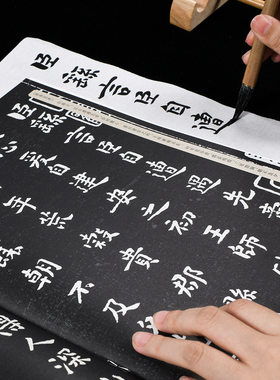 臣繇言臣自遭
臣繇言臣自遭遇先
心爰自建安之初王師
年荒穀貴郡
朝不及
人深